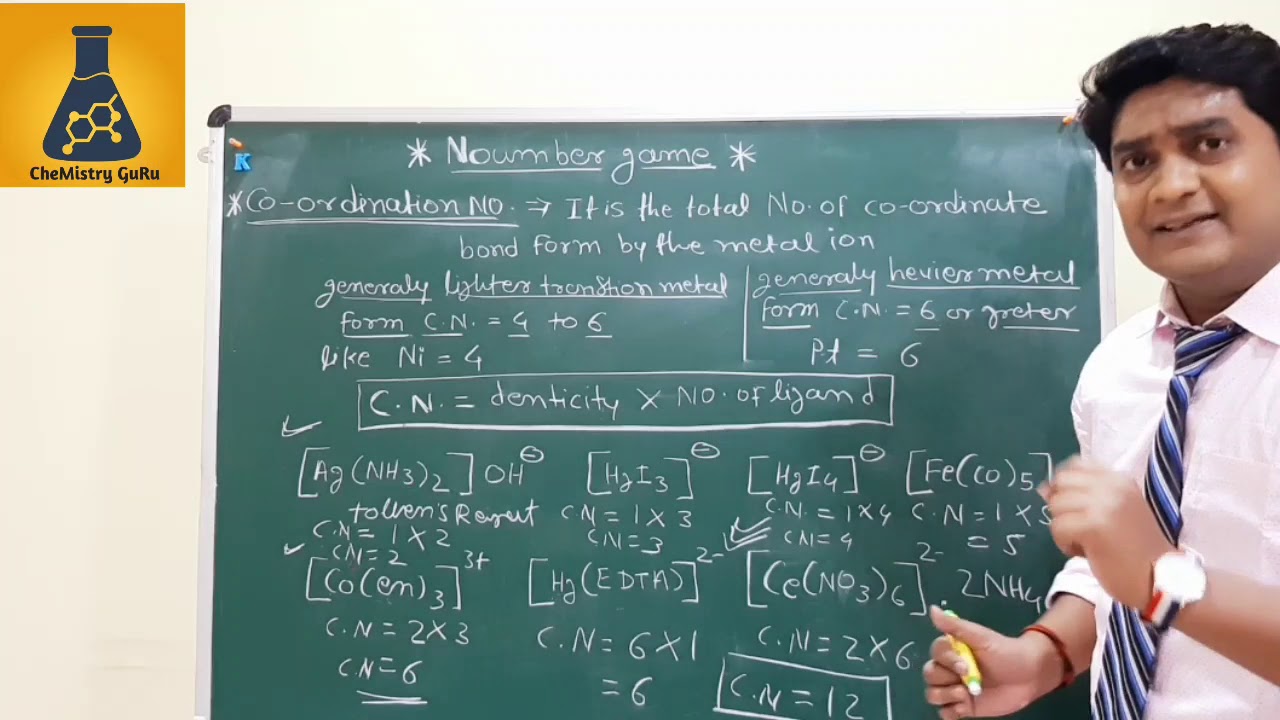 CheMistry GuRu
K
* Noumber game *
* Co-ordination NO. ⇒ It is the total No. of co-ordinate
bond form by the metal ion
generaly lighter transtion metal
form C.N. = 4 to 6
like Ni = 4
generaly hevier metal
form C.N. = 6 or greter
Pt = 6
C.N. = denticity × NO. of ligand
[Ag(NH3)2] OH⊖
tollen's Regent
C.N = 1 × 2
CN = 2
[HgI3]⊖
CN = 1 × 3
CN = 3
[HgI4]⊖
C.N. = 1×4
CN = 4
[Fe(CO)5]
C.N = 1 × 5
= 5
[Co(en)3]3+
C.N = 2×3
CN = 6
[Hg(EDTA)]2-
C.N = 6×1
= 6
[Ce(NO3)6]2- . 2NH4
C.N = 2×6
C.N = 12